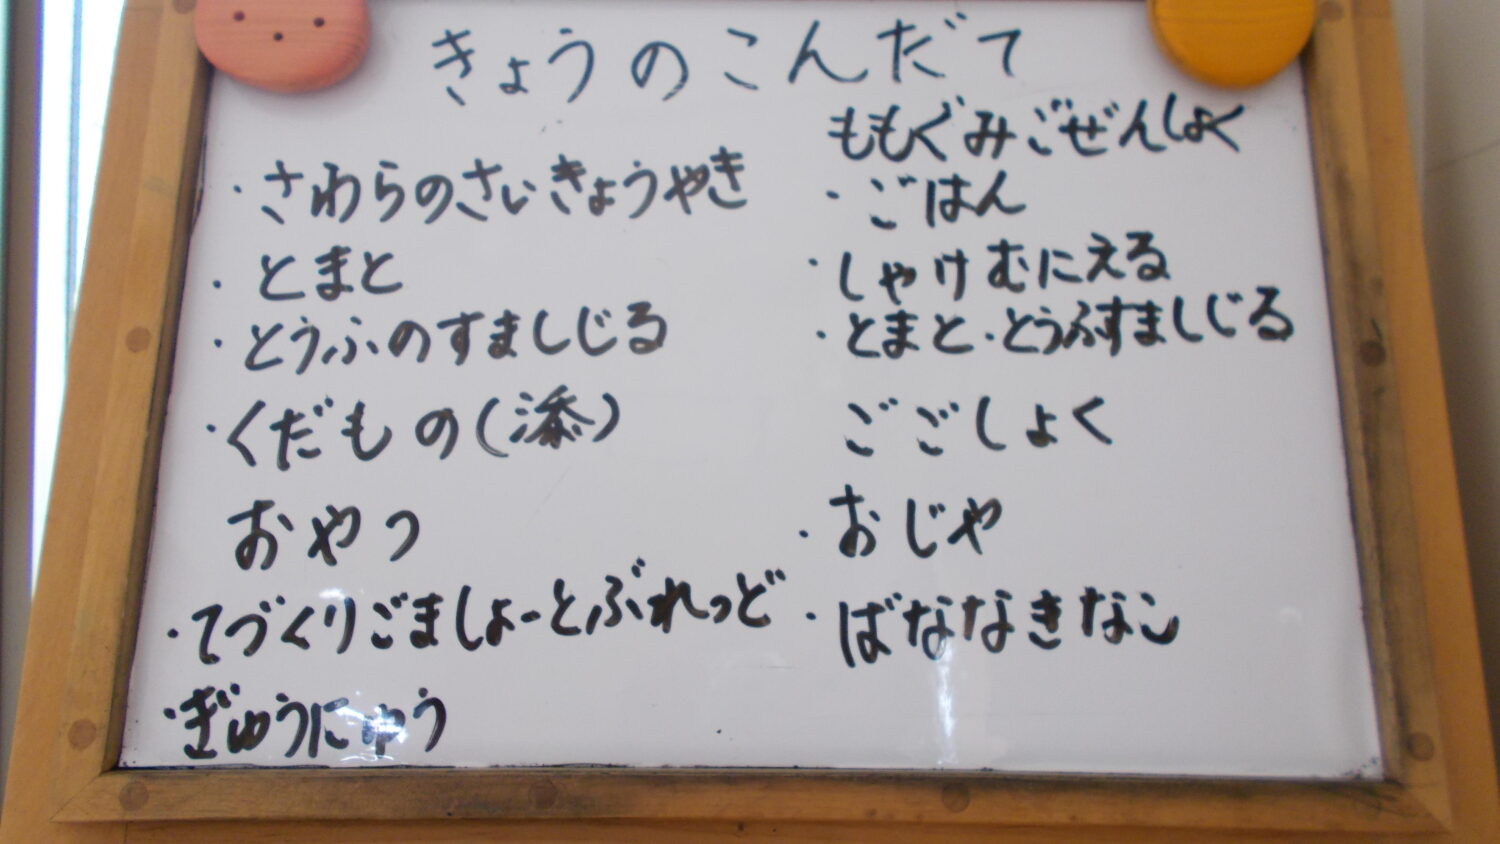 きょうのこんだて
・さわらのさいきょうやき
・とまと
・とうふのすましじる
・くだもの(添)
おやつ
・てづくりごましょーとぶれっど
・ぎゅうにゅう
ももぐみごぜんしょく
・ごはん
・しゃけむにえる
・とまと・とうふすましじる
ごごしょく
・おじや
・ばななきなこ